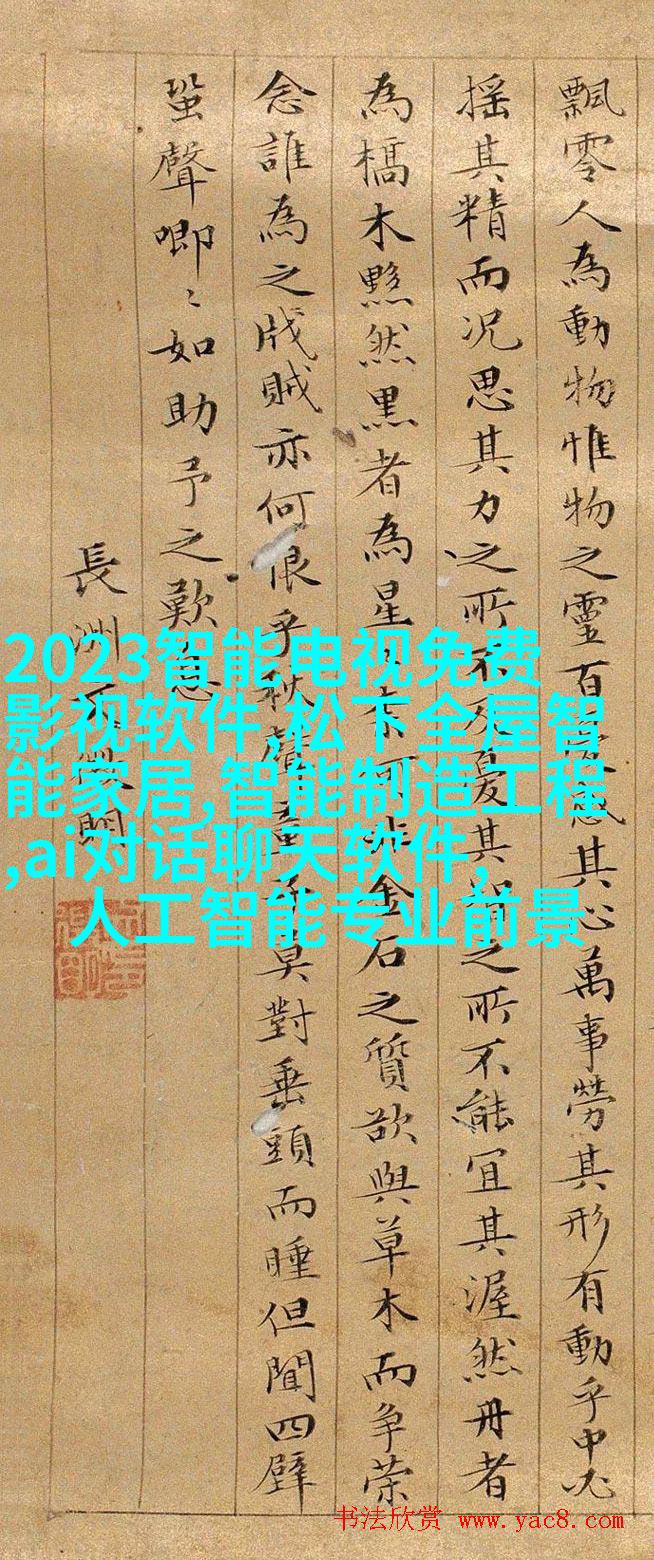 飄零人為動物惟物之靈百憂感其心萬事勞其形有動乎中必
搖其精而況思其力之所不及憂其智之所不能宜其渥然丹者
為槁木黟然黒者為星〻奈何非金石之質欲與草木而爭榮
念誰為之戕賊亦何恨乎秋聲童子莫對垂頭而睡但聞四壁
蛩聲唧〻如助予之歎息
長洲文徵明
2023智能电视免费
影视软件,松下全屋智
能家居,智能制造工程
,ai对话聊天软件,
人工智能专业前景
书法欣赏 www.yac8.com